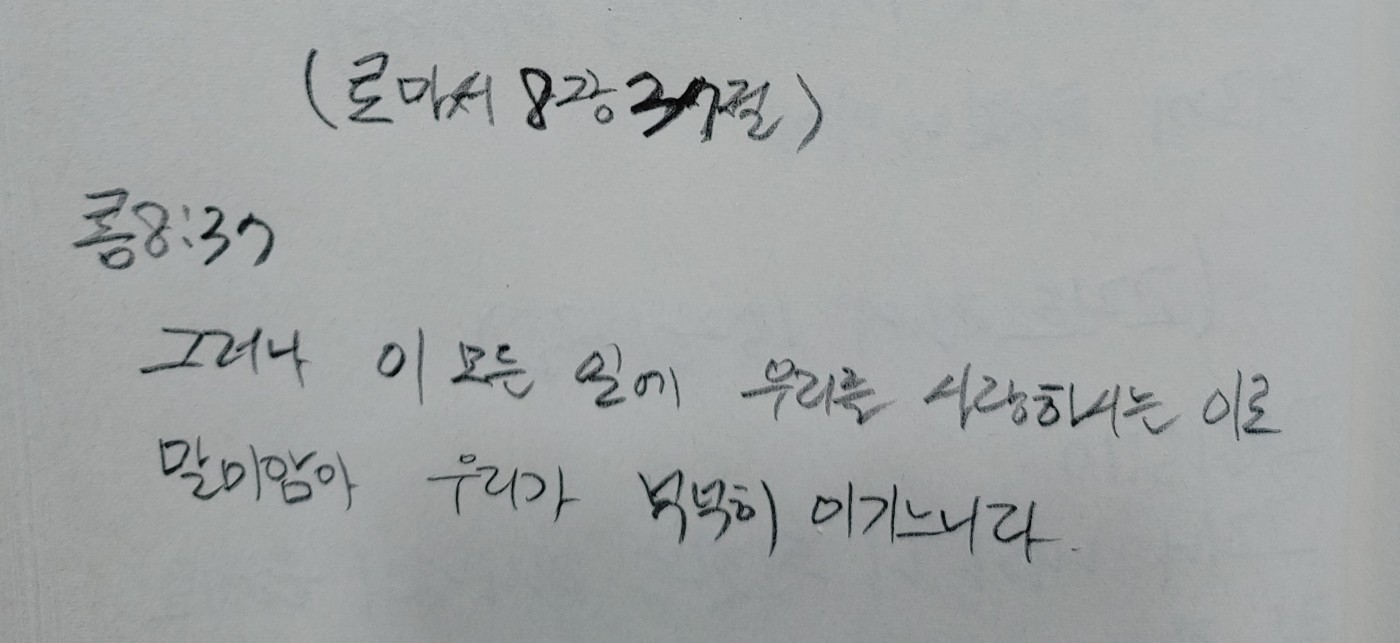 (로마서 8장 37절)
롬8:37
그러나 이 모든 일에 우리를 사랑하시는 이로
말미암아 우리가 넉넉히 이기느니라.